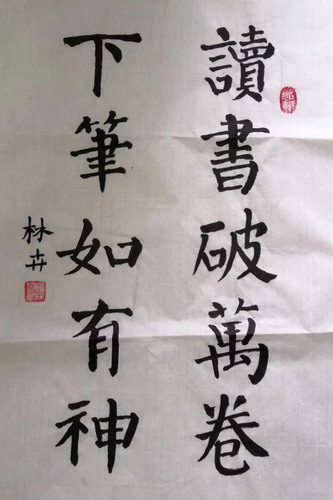 讀書破萬卷
下筆如有神
林卉